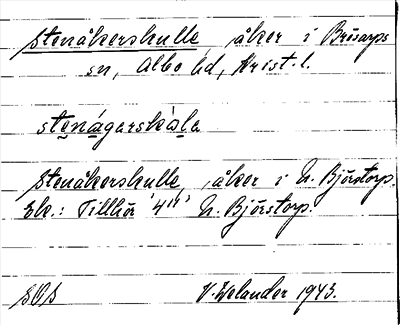 Stenåkershulle, åker i Brösarps
sn, Albo hd, Krist. l.
stenågarshåla
Stenåkershulle, åker i N. Björstorp.
Ek.: Tillhör 4" N. Björstorp.
SOS V. Welander 1943.